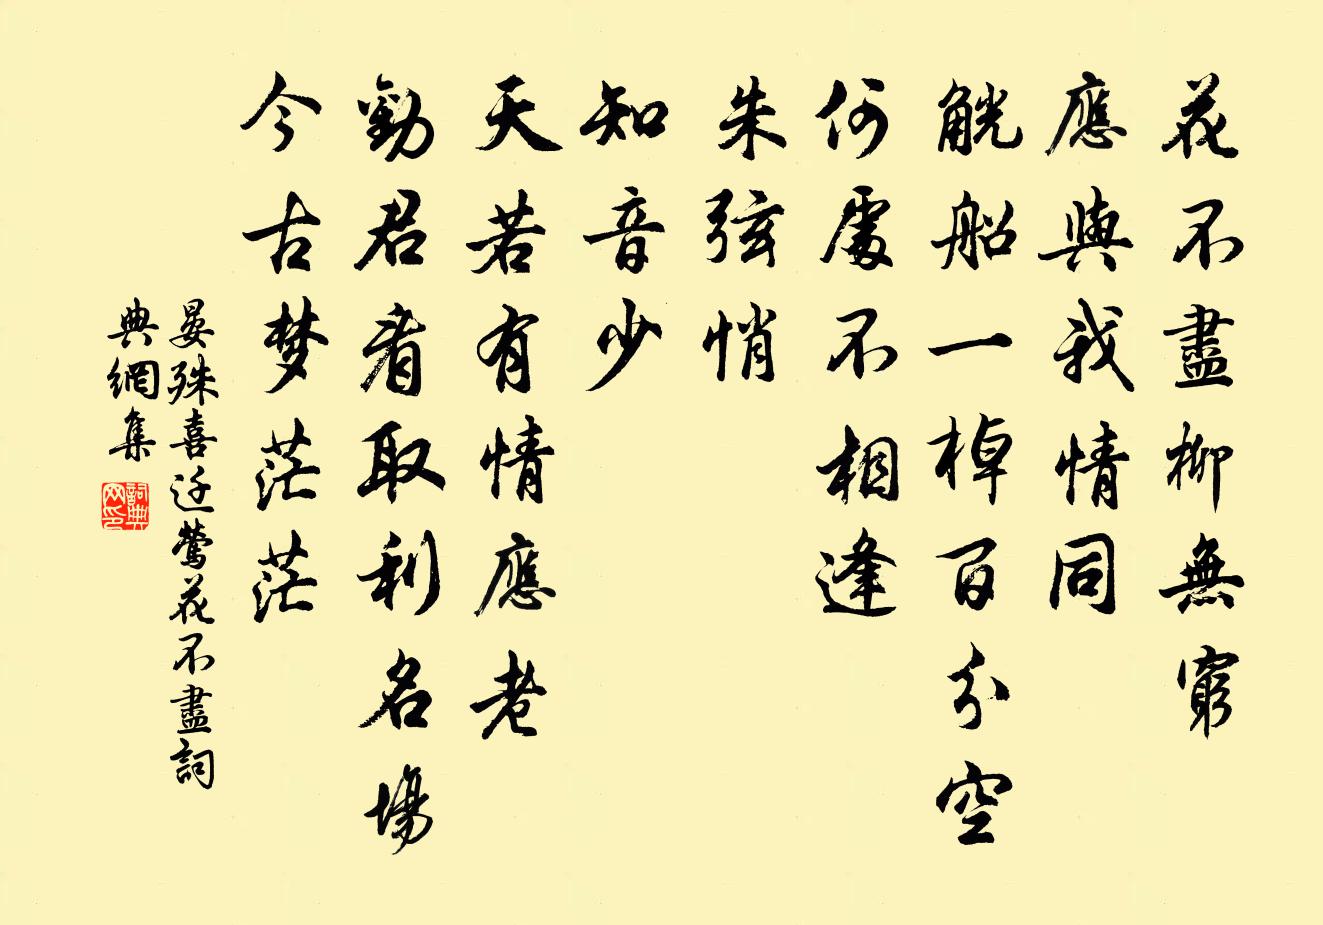 花不盡柳無窮
應與我情同
觥船一棹百分空
何處不相逢
朱弦悄
知音少
天若有情應老
勸君看取利名場
今古梦茫茫
晏殊喜迁鶯花不盡詞
典網集
詞典网印